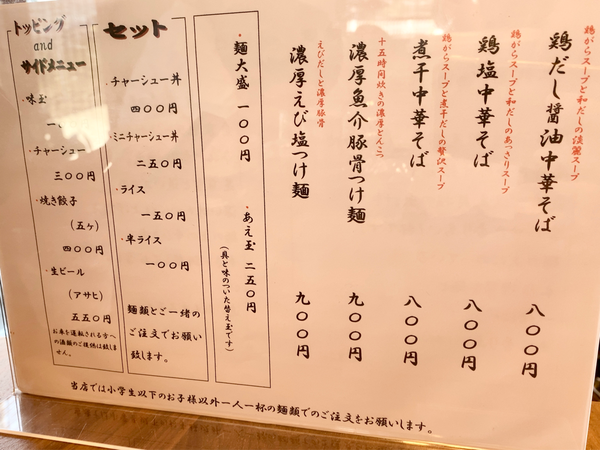 鶏がらスープと和だしの淡麗スープ
鶏だし醤油中華そば
八〇〇円
鶏がらスープと和だしのあっさりスープ
鶏塩中華そば
八〇〇円
鶏がらスープと煮干だしの贅沢スープ
煮干中華そば
八〇〇円
十五時間炊きの濃厚とんこつ
濃厚魚介豚骨つけ麺
九〇〇円
えびだしと濃厚豚骨
濃厚えび塩つけ麺
九〇〇円
・麺大盛 一〇〇円
・あえ玉 二五〇円
(具と味のついた替え玉です)
セット
・チャーシュー丼
四〇〇円
・ミニチャーシュー丼
二五〇円
・ライス
一五〇円
・半ライス
一〇〇円
麺類とご一緒の
ご注文でお願い
致します。
トッピング
and
サイドメニュー
・味玉
・チャーシュー
三〇〇円
・焼き餃子
(五ヶ)
四〇〇円
・生ビール
(アサヒ)
五五〇円
お車を運転される方へ
の酒類のご提供は致しま
せん。
当店では小学生以下のお子様以外一人一杯の麺類でのご注文をお願いします。